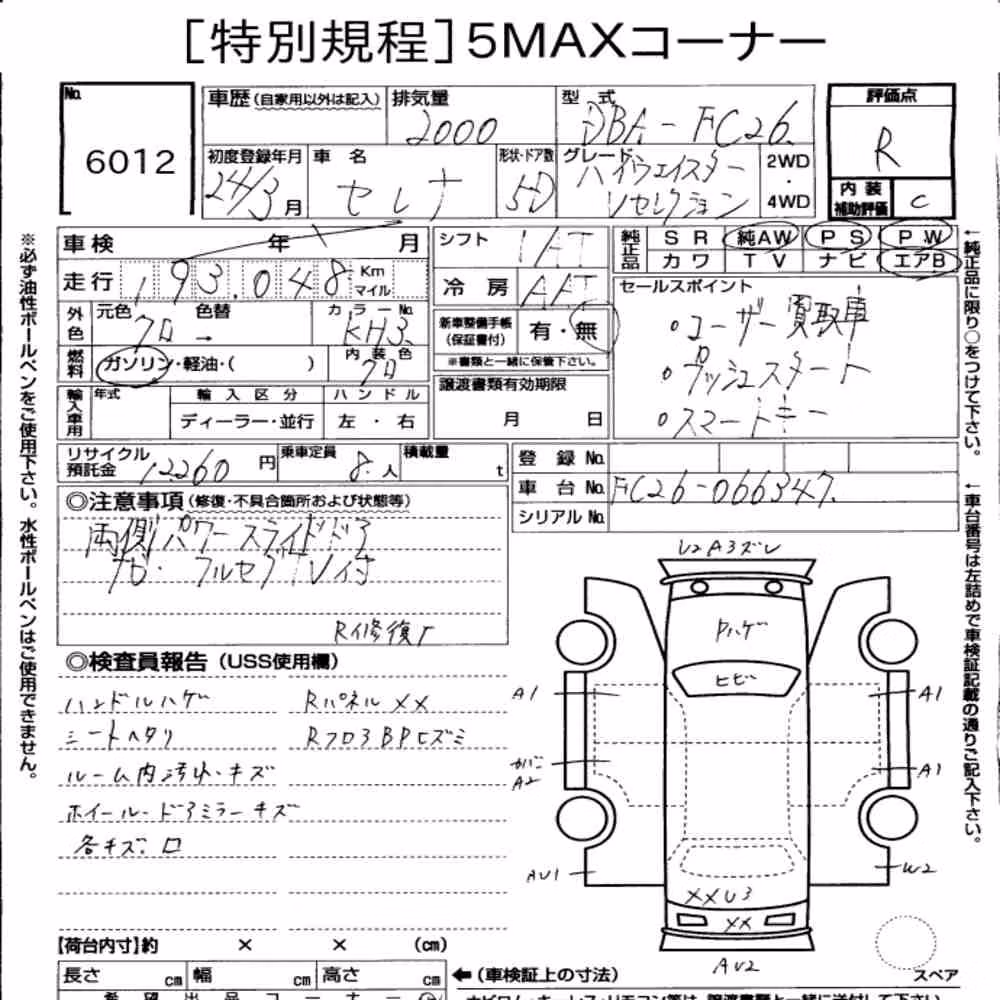 ［特別規程］5MAXコーナー
No.
6012
車歴（自家用以外は記入）
排気量
2000
型 式
DBA-FC26.
評価点
R
初度登録年月
24/3月
車 名
セレナ
形状・ドア数
5D
グレード
ハイウェイスター
Vセレクション
2WD
・
4WD
内 装
補助評価
C
車 検 年 月
シフト
IAT
純正品
S R 純AW P S P W
カ ワ T V ナ ビ エアB
走行 193.048 Km
マイル
冷 房
AAC
セールスポイント
○ユーザー買取車
○プッシュスタート
○スマートキー
外色
元色
クロ
→
色替
カラーNo.
KH3.
新車整備手帳
（保証書付）
有・無
※書類と一緒に保管下さい。
燃料
ガソリン・軽油・（ ）
内 装 色
クロ
輸入車用
年式
輸 入 区 分
ディーラー・並行
ハ ン ド ル
左 ・ 右
譲渡書類有効期限
月 日
リサイクル
預託金 12260 円
乗車定員
8.人
積載量
t
登 録 No.
車 台 No. FC26-066347.
シリアルNo.
◎注意事項（修復・不具合箇所および状態等）
両側パワースライドドア
ナビ・フルセグTV付
R修復了
◎検査員報告（USS使用欄）
ハンドルハゲ
シートヘタリ
ルーム内汚れ・キズ
ホイール・ドアミラーキズ
各キズ.ロ
RパネルXX
Rフロア BPヒズミ
U2A3ズレ
Pハゲ
ヒビ
A1
A1
カバー
A2
A1
AU1
W2
XXU3
XX
AU2
スペア
【荷台内寸】約 × × （cm）
長さ cm 幅 cm 高さ cm
←（車検証上の寸法）
希 望 出 品 コ ー ナ ー
※必ず油性ボールペンをご使用下さい。水性ボールペンはご使用できません。
←純正品に限り○をつけて下さい。
←車台番号は左詰めで車検証記載の通りご記入下さい。